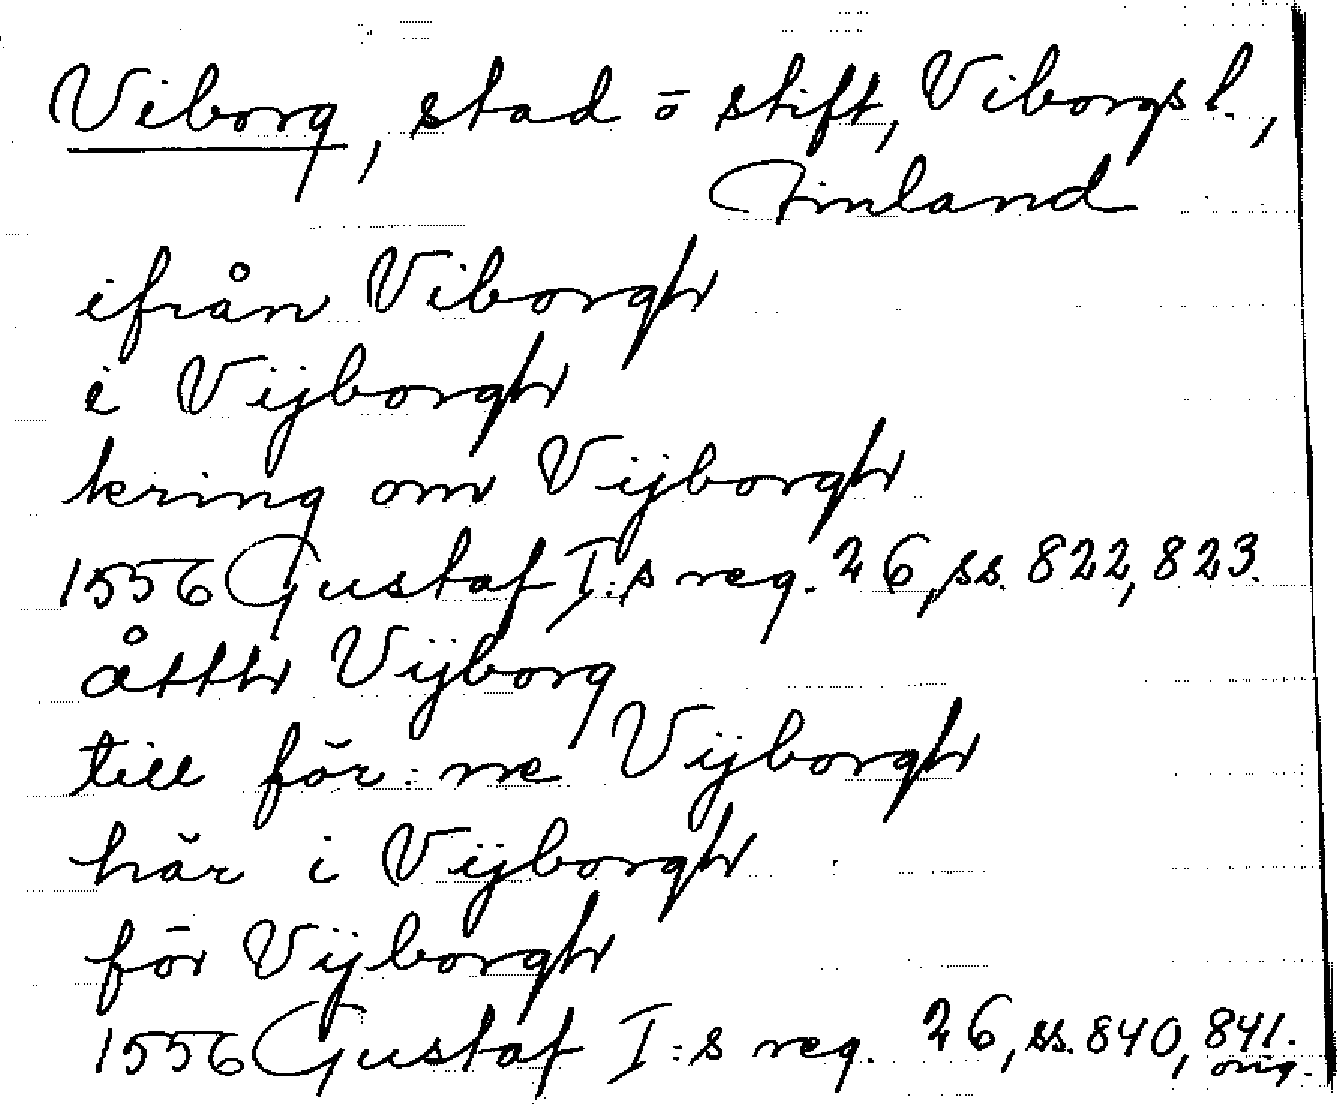 Viborg, stad ö stift, Viborgs l.,
Finland
ifrån Viborgh
i Vijborgh
kring om Vijborgh
1556 Gustaf I:s reg. 26, ss. 822, 823.
åtth Vijborg
till för:ne Vijborgh
här i Vijborgh
för Vijborgh
1556 Gustaf I:s reg. 26, ss. 840, 841.
orig.